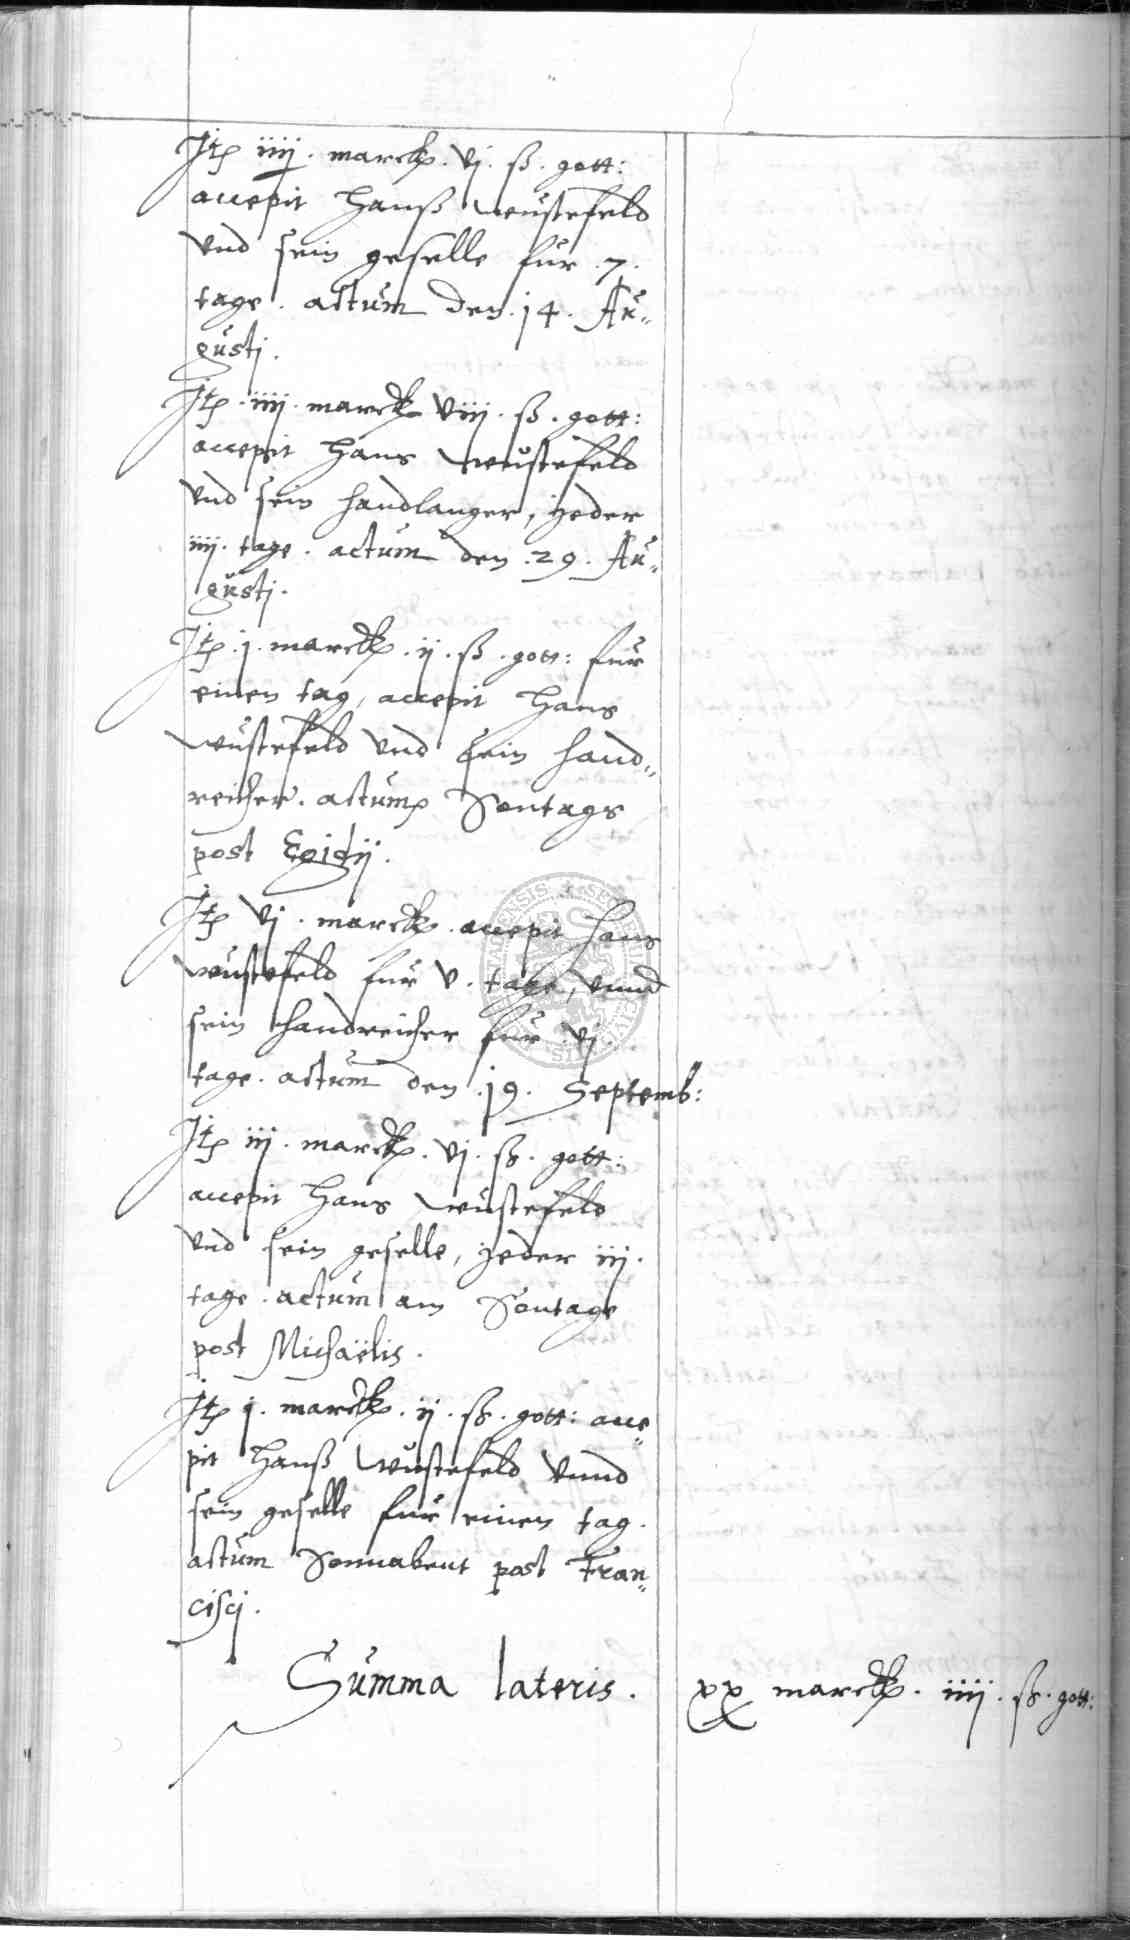 Itp iiij. marck. vj. ß. gott:
accepit Hanß Wustefeld
vnd sein geselle fur .7.
tage. actum den .14. Au„
gustj.
Itp. iiij. marck viij. ß. gott:
accepit Hans Wustefeld
vnd sein handlanger, jeder
iiij. tage. actum den .29. Au„
gustj.
Itp .j. marck. ij. ß. gott: fur
einen tag, accepit Hans
Wustefeld vnd sein hand„
reicher. actump Sontags
post Egidij.
Itp vj. marck. accepit Hans
Wustefeld fur v. tage, vnnd
sein handreicher fur vj.
tage. actum den .19. Septemb:
Itp iij. marck. vj. ß. gott:
accepit Hans Wustefeld
vnd sein geselle, jeder iij.
tage. actum am Sontage
post Michaëlis.
Itp j. marck. ij. ß. gott: acce„
pit Hanß Wustefeld vnnd
sein geselle fur einen tag.
actum Sonnabent post Fran„
cisci.
Summa lateris. xx marck. iiij. ß. gott: